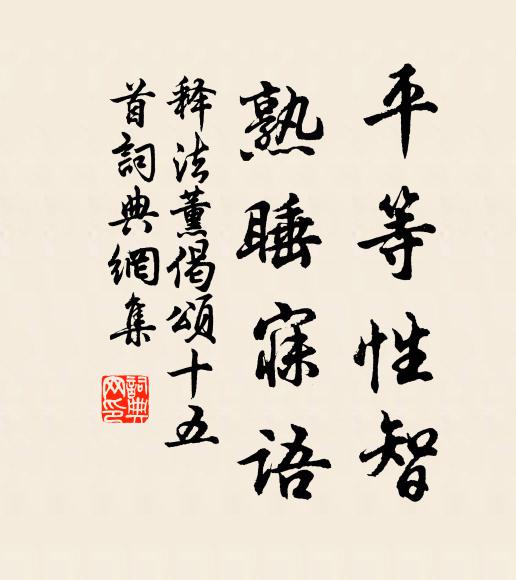 平等性智
熟睡寐语
释法薰偈颂十五
首词典网集
词典网印